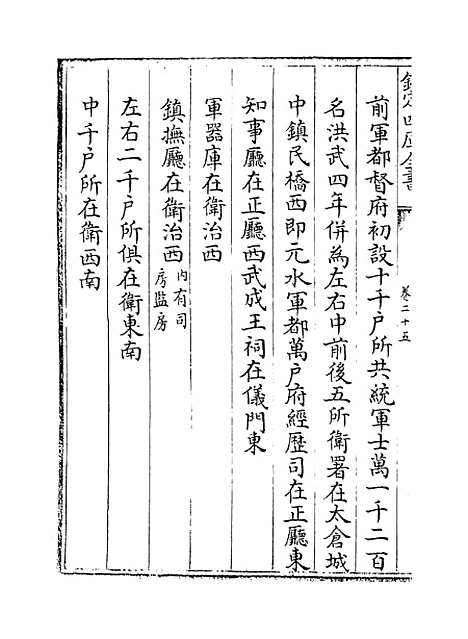 欽定四庫全書
卷二十五
前軍都督府初設十千户所共統軍士萬一千二百
名洪武四年併為左右中前後五所衛署在太倉城
中鎮民橋西即元水軍都萬户府經歴司在正廳東
知事廳在正廳西武成王祠在儀門東
軍器庫在衛治西
鎮撫廳在衛治西内有司房監房
左右二千户所俱在衛東南
中千户所在衛西南